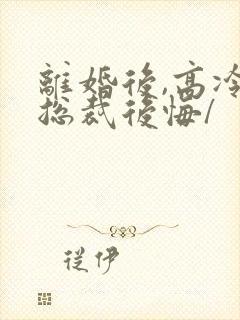 離婚後,高冷
總裁後悔/
從伊